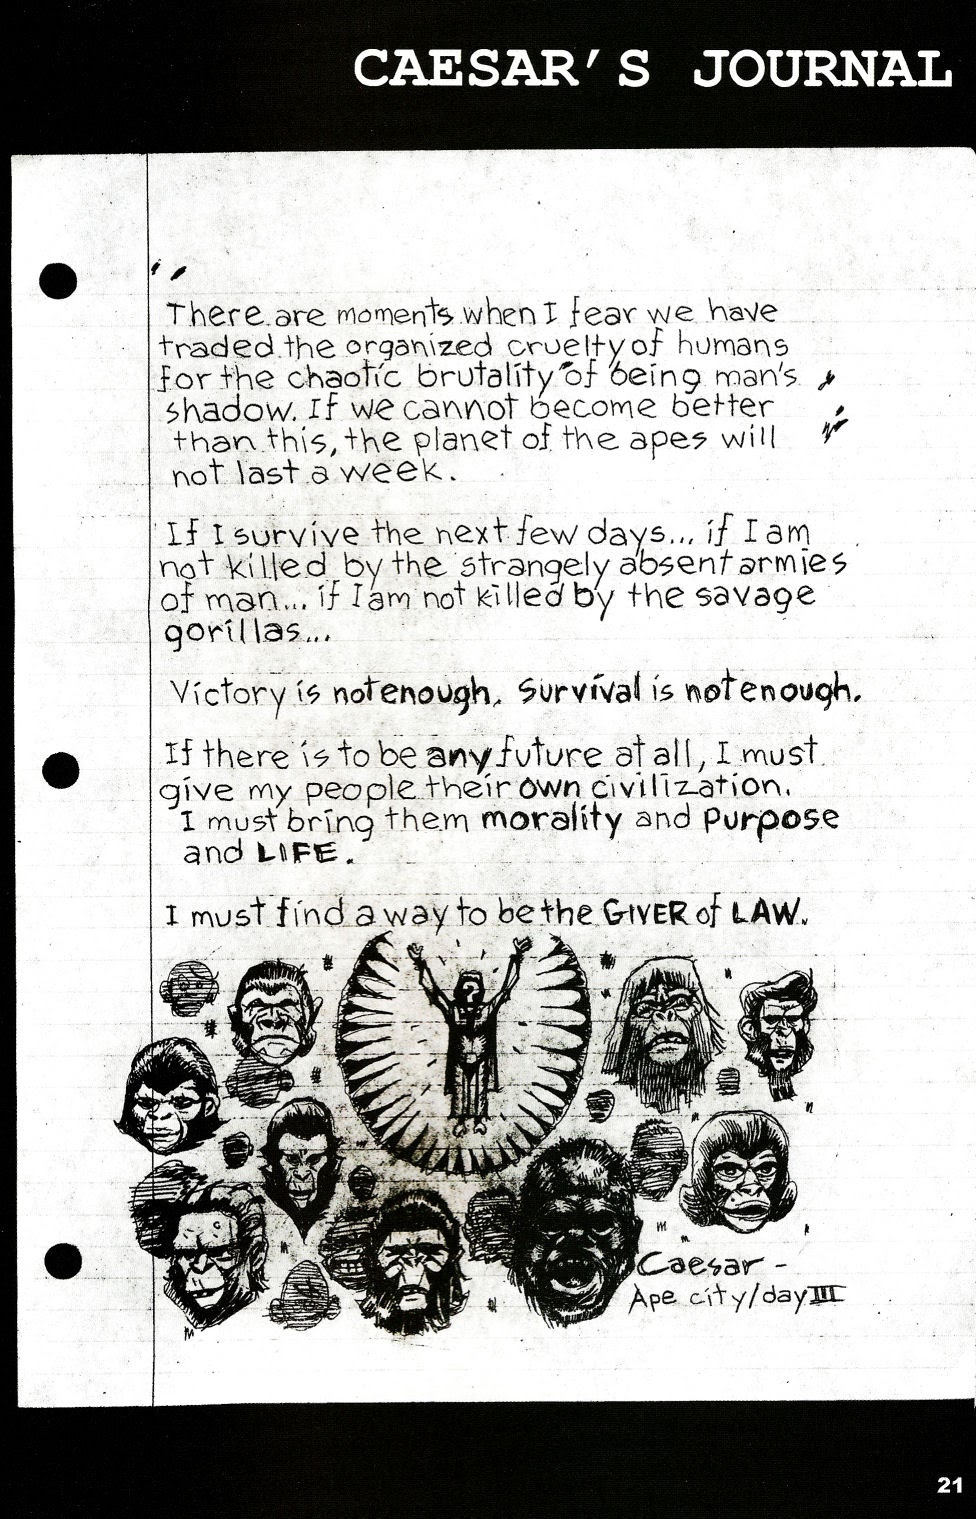 CAESAR'S JOURNAL
There are moments when I fear we have
traded the organized cruelty of humans
for the chaotic brutality of being man's
shadow. If we cannot become better
than this, the planet of the apes will
not last a week.
If I survive the next few days... if I am
not killed by the strangely absent armies
of man... if I am not killed by the savage
gorillas...
Victory is not enough. Survival is not enough.
If there is to be any future at all, I must
give my people their own civilization.
I must bring them morality and purpose
and LIFE.
I must find a way to be the GIVER of LAW.
?
Caesar -
Ape city/day III
21